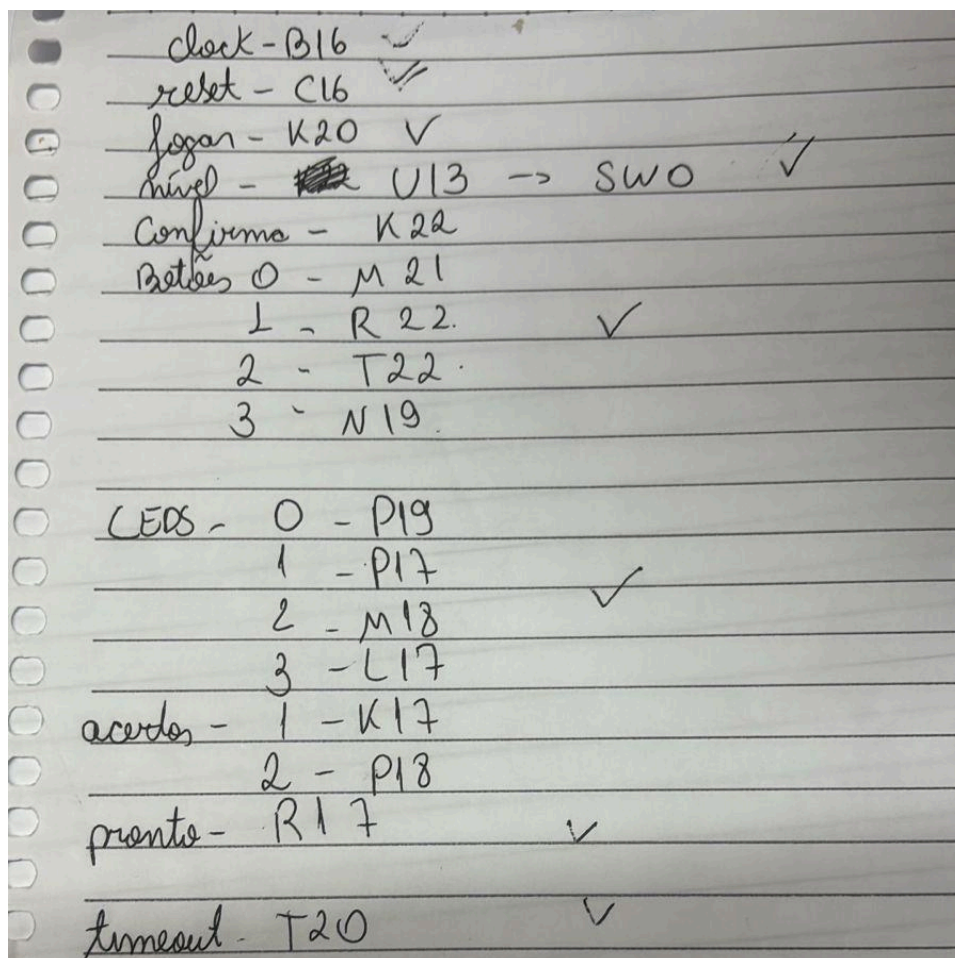 clock - B16 ✓
reset - C16 ✓
jogar - K20 ✓
nível - U13 -> SW0 ✓
Confirma - K22
Botões 0 - M21
1 - R22. ✓
2 - T22.
3 - N19.
LEDS - 0 - P19
1 - P17 ✓
2 - M18
3 - L17
acertos - 1 - K17
2 - P18
pronto - R17 ✓
timeout - T20 ✓